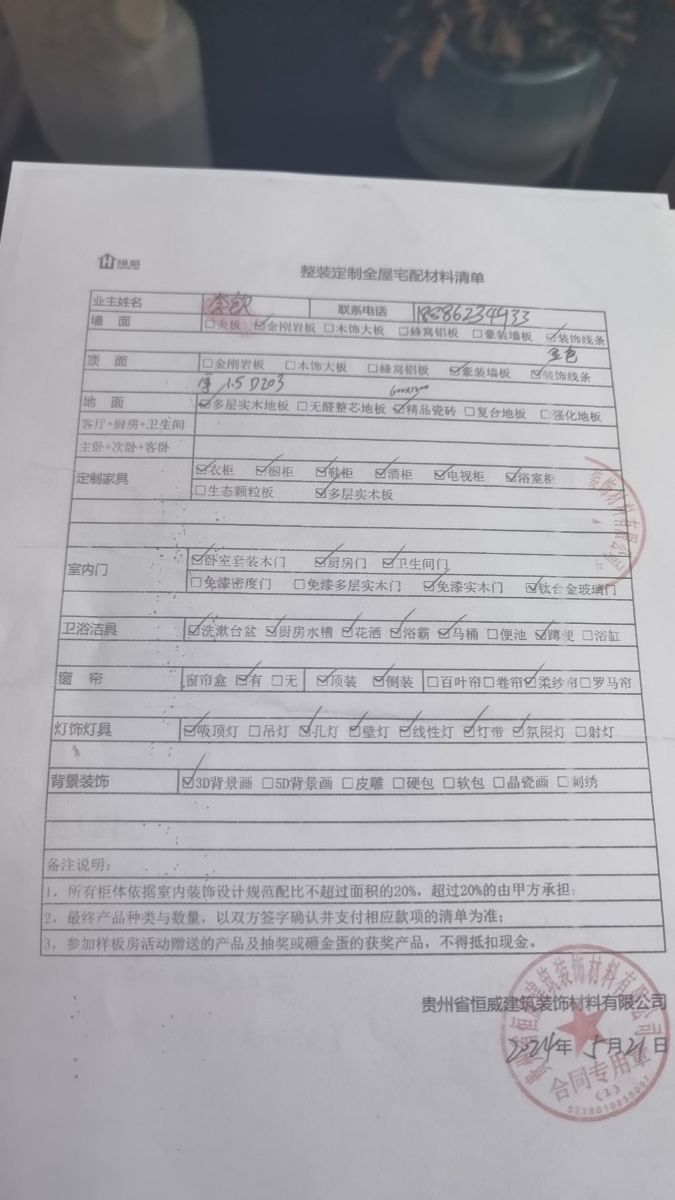 恒威
整装定制全屋宅配材料清单
业主姓名 李钦 联系电话 18886234933
墙 面 □夹板 ☑金刚岩板 □木饰大板 □蜂窝铝板 □豪装墙板 ☑装饰线条
金色
顶 面 □金刚岩板 □木饰大板 □蜂窝铝板 ☑豪装墙板 ☑装饰线条
厚 1.5 D203
地 面 ☑多层实木地板 □无醛整芯地板 ☑精品瓷砖 □复合地板 □强化地板
客厅+厨房+卫生间
主卧+次卧+客卧
定制家具 ☑衣柜 ☑橱柜 ☑鞋柜 ☑酒柜 ☑电视柜 ☑浴室柜
□生态颗粒板 ☑多层实木板
室内门 ☑卧室套装木门 ☑厨房门 ☑卫生间门
□免漆密度门 □免漆多层实木门 ☑免漆实木门 ☑钛台金玻璃门
卫浴洁具 ☑洗漱台盆 ☑厨房水槽 ☑花洒 ☑浴霸 ☑马桶 □便池 ☑蹲便 □浴缸
窗 帘 窗帘盒 ☑有 □无 ☑顶装 ☑侧装 □百叶帘 □卷帘 ☑柔纱帘 □罗马帘
灯饰灯具 ☑吸顶灯 □吊灯 ☑孔灯 ☑壁灯 ☑线性灯 ☑灯带 ☑氛围灯 □射灯
背景装饰 ☑3D背景画 □5D背景画 □皮雕 □硬包 □软包 □晶瓷画 □刺绣
备注说明：
1、所有柜体依据室内装饰设计规范配比不超过面积的20%，超过20%的由甲方承担；
2、最终产品种类与数量，以双方签字确认并支付相应款项的清单为准；
3、参加样板房活动赠送的产品及抽奖或砸金蛋的获奖产品，不得抵扣现金。
贵州省恒威建筑装饰材料有限公司
2024年 5月21日
贵州省恒威建筑装饰材料有限公司
合同专用章
(1)
5226019855097